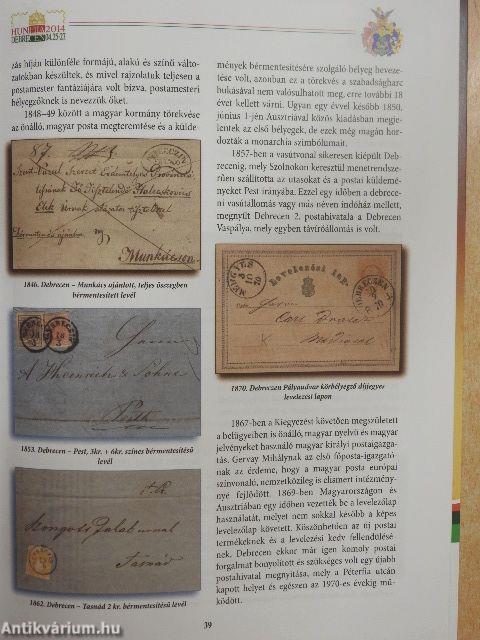 HUNFILA2014
DEBRECEN04.25-27.
zás híján különféle formájú, alakú és színű válto-
zatokban készültek, és mivel rajzolatuk teljesen a
postamester fantáziájára volt bízva, postamesteri
bélyegzőknek is nevezzük őket.
1848–49 között a magyar kormány törekvése
az önálló, magyar posta megteremtése és a külde-
Munkácson
1846. Debrecen – Munkács ajánlott, teljes összegben
bérmentesített levél
Pesth
1853. Debrecen – Pest, 3kr. + 6kr. színes bérmentesítésű
levél
Tasnád
1862. Debrecen – Tasnád 2 kr. bérmentesítésű levél
mények bérmentesítésére szolgáló bélyeg beveze-
tése volt, azonban ez a törekvés a szabadságharc
bukásával nem valósulhatott meg, erre további 18
évet kellett várni. Ugyan egy évvel később 1850,
június 1-jén Ausztriával közös kiadásban megje-
lentek az első bélyegek, de ezek még magán hor-
dozták a monarchia szimbólumait.
1857-ben a vasútvonal sikeresen kiépült Deb-
recenig, mely Szolnokon keresztül menetrendsze-
rűen szállította az utasokat és a postai küldemé-
nyeket Pest irányába. Ezzel egy időben a debrece-
ni vasútállomás vagy más néven indóház mellett,
megnyílt Debrecen 2. postahivatala a Debrecen
Vaspálya, mely egyben távíróállomás is volt.
MEGGYES
Levelezési lap.
DEBRECZEN
1870. Debreczen Pályaudvar körbélyegző díjjegyes
levelezési lapon
1867-ben a Kiegyezést követően megszületett
a belügyeiben is önálló, magyar nyelvű és magyar
jelvényeket használó magyar királyi postaigazga-
tás. Gervay Mihálynak az első főposta-igazgató-
nak az érdeme, hogy a magyar posta európai
színvonalú, nemzetközileg is elismert intézmény-
nyé fejlődött. 1869-ben Magyarországon és
Ausztriában egy időben vezették be a levelezőlap
használatát, melyet nem sokkal később a képes
levelezőlap követett. Köszönhetően az új postai
termékeknek és a levelezési kedv fellendülésé-
nek. Debrecen ekkor már igen komoly postai
forgalmat bonyolított és szükséges volt egy újabb
postahivatal megnyitása, mely a Péterfia utcán
kapott helyet és egészen az 1970-es évekig mű-
ködött.
39
Antikvárium.hu